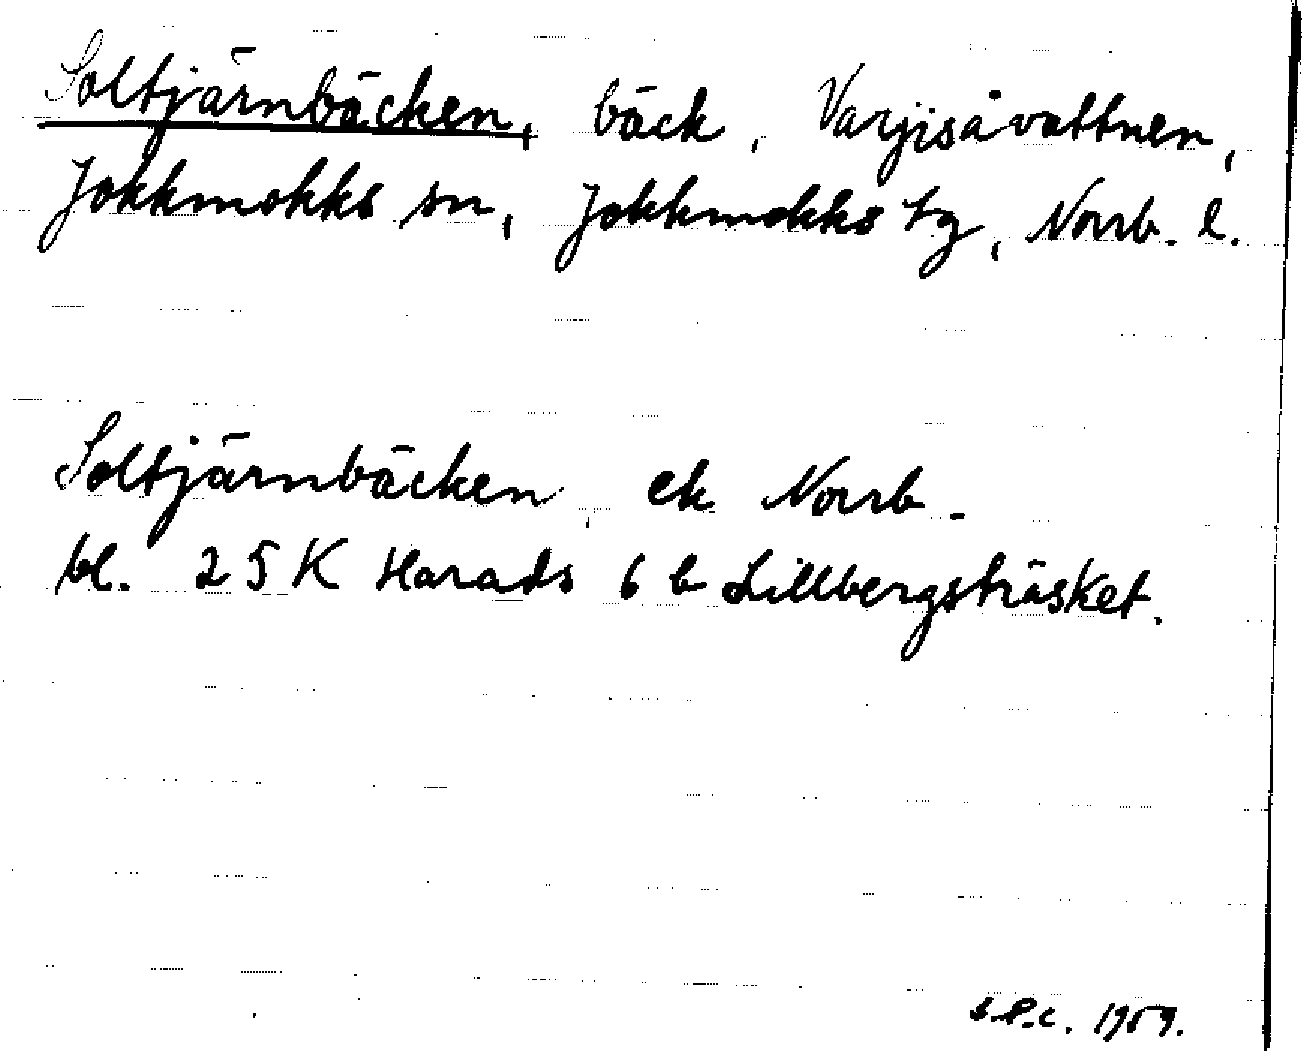 Soltjärnbäcken, bäck, Varjisåvattnen,
Jokkmokks sn, Jokkmokks tg, Norrb. l.
Soltjärnbäcken ek Norrb.
bl. 25 K Harads 6 b Lillbergsträsket.
1959.